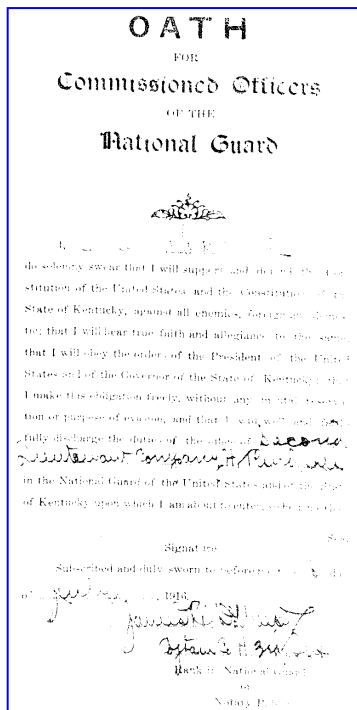 OATH
FOR
Commissioned Officers
OF THE
National Guard
I,
do solemnly swear that I will support and defend the Con-
stitution of the United States and the Constitution of the
State of Kentucky, against all enemies, foreign and domes-
tic; that I will bear true faith and allegiance to the same;
that I will obey the orders of the President of the United
States and of the Governor of the State of Kentucky; that
I make this obligation freely, without any mental reserva-
tion or purpose of evasion, and that I will well and faith-
fully discharge the duties of the office of Second
Lieutenant Company H
in the National Guard of the United States and of the State
of Kentucky upon which I am about to enter, so help me God.
Signature
Subscribed and duly sworn to before me this
of 1916.
James H.
Captain
Rank in National Guard
or
Notary Public